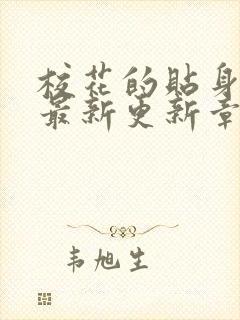 校花的贴身
最新更新章
韦旭生